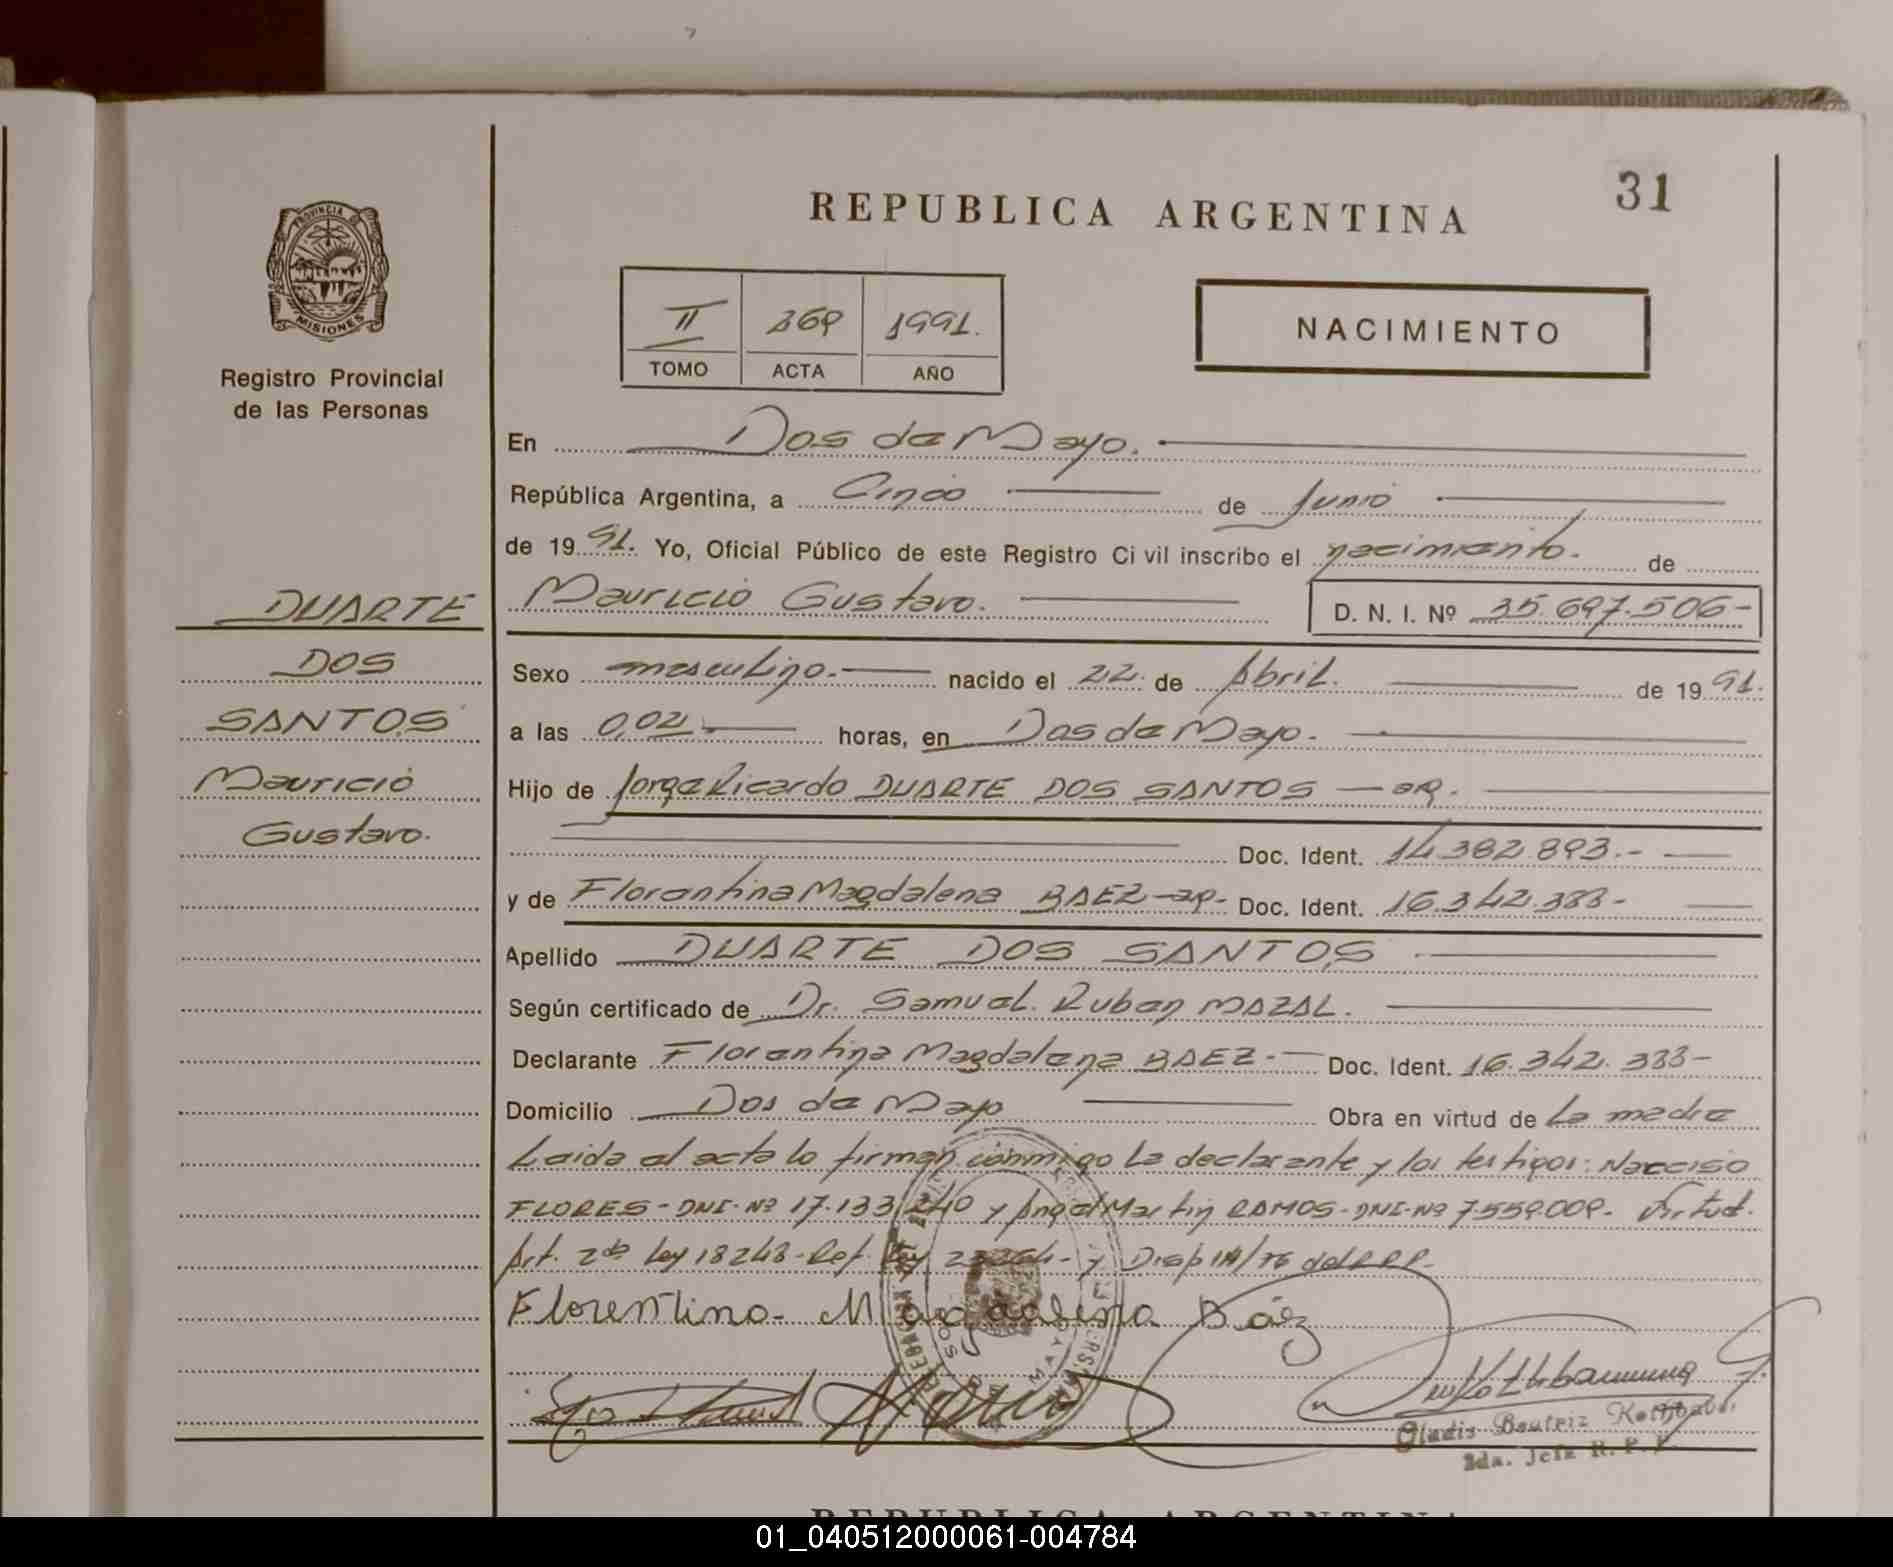 31
REPUBLICA ARGENTINA
PROVINCIA DE
MISIONES
Registro Provincial
de las Personas
II 269 1991.
TOMO ACTA AÑO
NACIMIENTO
En Dos de Mayo.
República Argentina, a Cinco de Junio
de 19 91. Yo, Oficial Público de este Registro Ci vil inscribo el nacimiento. de
Mauricio Gustavo. D. N. I. Nº 35.697.506-
DUARTE
DOS
SANTOS
Mauricio
Gustavo.
Sexo masculino. nacido el 22. de Abril. de 19 91.
a las 0,02 horas, en Dos de Mayo.
Hijo de Jorge Ricardo DUARTE DOS SANTOS - ar.
Doc. Ident. 14.382.893.-
y de Florentina Magdalena BAEZ - ar.- Doc. Ident. 16.342.383-
Apellido DUARTE DOS SANTOS
Según certificado de Dr. Samuel Ruben MAZAL.
Declarante Florentina Magdalena BAEZ.- Doc. Ident. 16.342.383-
Domicilio Dos de Mayo Obra en virtud de La madre
Leida el acta lo firman conmigo la declarante y los testigos: Narciso
FLORES - DNI-Nº 17.133.240 y Angel Martin RAMOS-DNI-Nº 7.559.009.- Virtud.
Art. 2do Ley 18248-Ref. Ley y Disp 111/76 del RPP.-
Florentina Magdalena Báez
Gladis Beatriz
2da. Jefa R. P. P.
REPUBLICA ARGENTINA
01_040512000061-004784